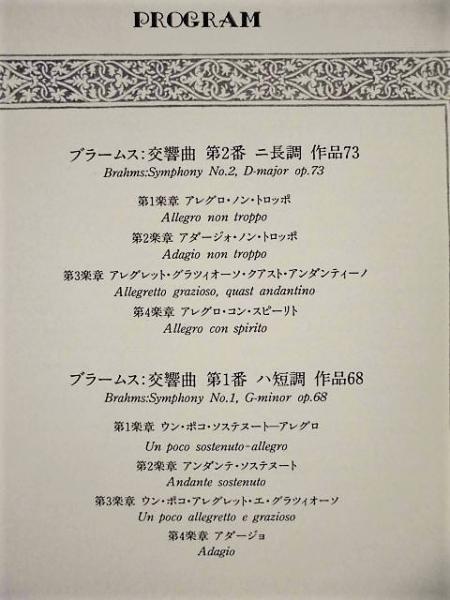 PROGRAM
ブラームス：交響曲 第2番 ニ長調 作品73
Brahms:Symphony No.2, D-major op.73
第1楽章 アレグロ・ノン・トロッポ
Allegro non troppo
第2楽章 アダージォ・ノン・トロッポ
Adagio non troppo
第3楽章 アレグレット・グラツィオーソ・クアスト・アンダンティーノ
Allegretto grazioso, quast andantino
第4楽章 アレグロ・コン・スピーリト
Allegro con spirito
ブラームス：交響曲 第1番 ハ短調 作品68
Brahms:Symphony No.1, G-minor op.68
第1楽章 ウン・ポコ・ソステヌート―アレグロ
Un poco sostenuto-allegro
第2楽章 アンダンテ・ソステヌート
Andante sostenuto
第3楽章 ウン・ポコ・アレグレット・エ・グラツィオーソ
Un poco allegretto e grazioso
第4楽章 アダージョ
Adagio